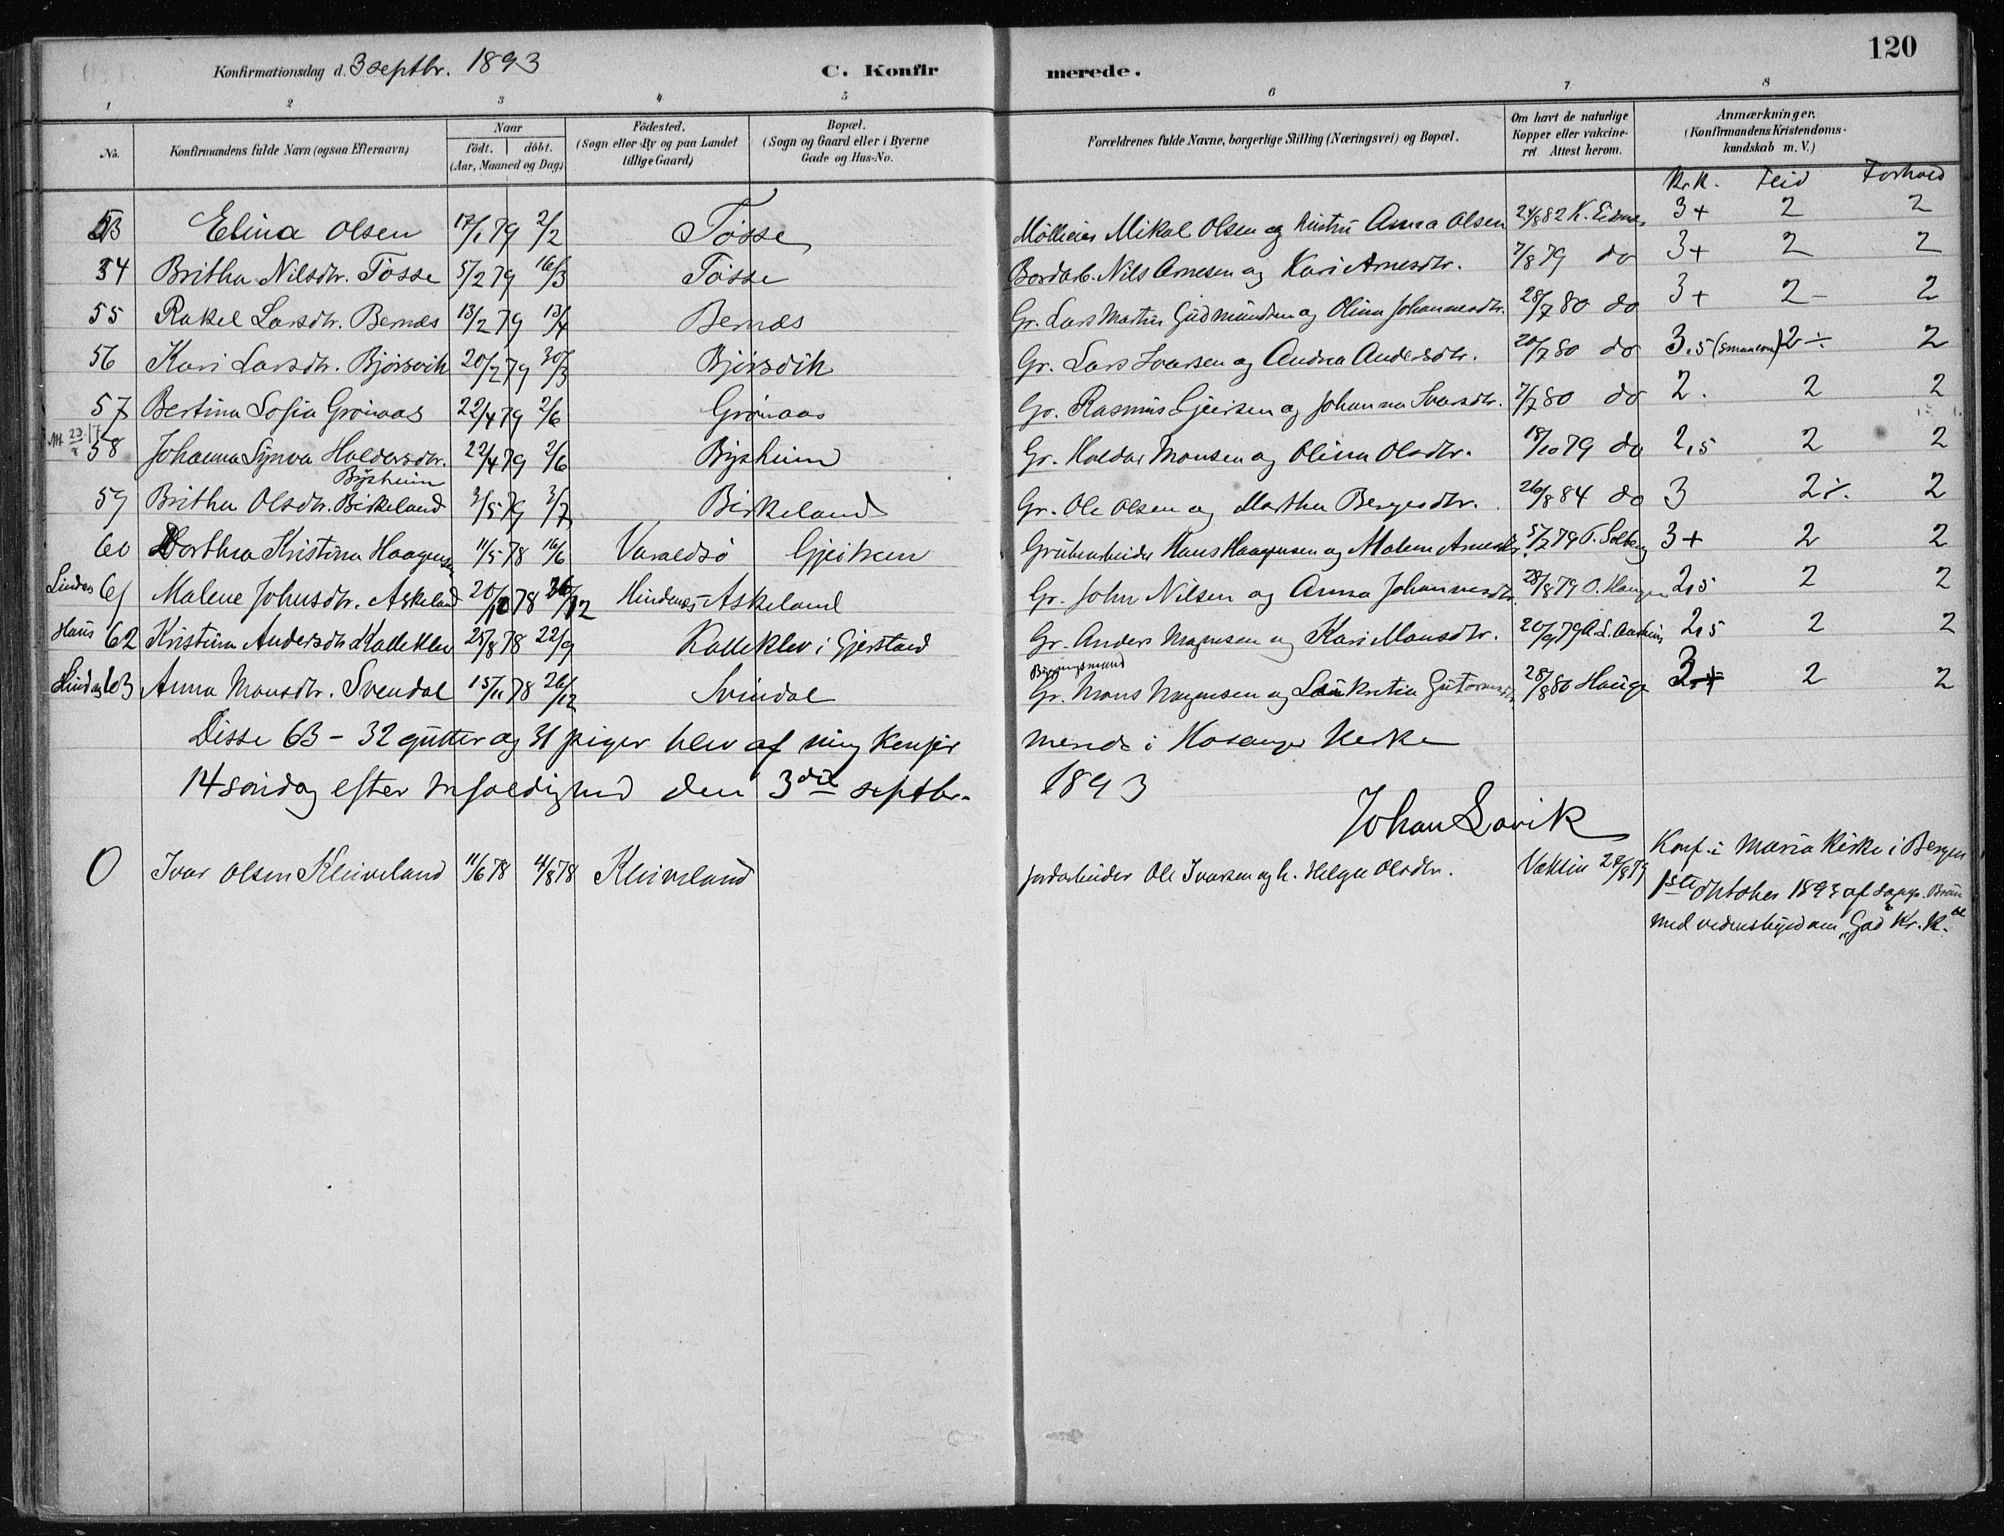 120
Konfirmationsdag d. 3 septbr. 1893 C. Konfirmerede.
1 2 3 4 5 6 7 8
No. Konfirmandens fulde Navn (ogsaa Efternavn) Naar Födt. döbt. (Aar, Maaned og Dag) Födested. (Sogn eller By og paa Landet tillige Gaard) Bopæl. (Sogn og Gaard eller i Byerne Gade og Hus-No. Forældrenes fulde Navne, borgerlige Stilling (Næringsvei) og Bopæl. Om havt de naturlige Kopper eller vakcineret. Attest herom. Anmærkninger. (Konfirmandens Kristendomskundskab m. V.)
Kr.K. Flid Forhold
53 Elina Olsen 17/1 79 2/2 Tösse Mölleier Mikal Olsen og Hustru Anna Olsen 24/8 82 K. Eidnes 3+ 2 2
54 Britha Nilsdtr. Tösse 5/2 79 16/3 Tösse Bordarb. Nils Arnesen og Kari Arnesdtr. 7/8 79 do 3+ 2 2
55 Rakel Larsdtr. Bernæs 13/2 79 13/4 Bernæs Gr. Lars Martin Gudmundsen og Olina Johannesdtr. 28/7 80 do 3+ 2- 2
56 Kari Larsdtr. Björsvik 20/2 79 30/3 Björsvik Gr. Lars Ivarsen og Andrea Andersdtr. 20/7 80 do 3,5 2÷ 2
57 Bertina Sofia Grönaas 22/4 79 2/6 Grönaas Gr. Rasmus Gjertsen og Johanna Ivarsdtr. 7/7 80 do 2. 2 2
58 Johanna Synva Haldorsdtr. Bysheim 22/4 79 2/6 Bysheim Gr. Haldor Monsen og Olina Olsdtr. 18/10 79 do 2,5 2 2
59 Britha Olsdtr. Birkeland 3/5 79 3/7 Birkeland Gr. Ole Olsen og Martha Bergesdtr. 26/8 84 do 3 2÷ 2
60 Dorthea Kristina Haagensen 11/5 78 16/6 Varaldsö Gjeitren Grubearbeider Hans Haagensen og Malene Arnesdtr. 5/7 79 T. Solberg 3+ 2 2
Lindås 61 Malene Johnsdtr. Askeland 20/10 78 26/12 Hindenes Askeland Gr. John Nilsen og Anna Johannesdtr. 28/8 79 O. Haugen 2,5 2 2
Haus 62 Kristina Andersdtr. Kalleklev 25/8 78 22/9 Kalleklev i Gjerstad Gr. Anders Magnesen og Kari Monsdtr. 20/9 79 2,5 2 2
63 Anna Monsdtr. Svendal 15/11 78 26/12 Svindal Gr. Mons Magnesen og Laukretia Gutormsdtr. 28/8 80 Hauge 3+ 2 2
Disse 63 – 32 gutter og 31 piger blev af mig konfirmerede i Hosanger Kirke
14 söndag efter trefoldighed den 3die septbr. 1893
Johan Lavik
0 Ivar Olsen Kleiveland 11/6 78 4/8 78 Kleiveland Jordarbeider Ole Ivarsen og h. Helga Olsdtr. Vaksin 27/8 79 Konf. i Maria Kirke i Bergen
1ste oktober 1893 af sogn. Bruun
med vidnesbyrd om "God" Kr. K.